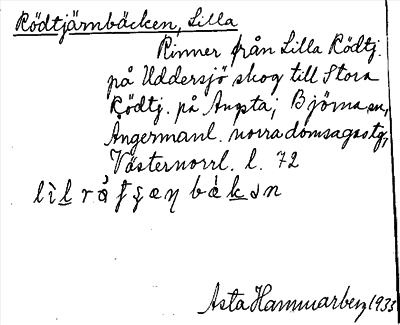 Rödtjärnbäcken, Lilla
Rinner från Lilla Rödtj.
på Uddersjö skog till Stora
Rödtj. på Anpta; Björna sn,
Ångermanl. norra domsagas tg,
Västernorrl. l. 72
Asta Hammarberg 1933